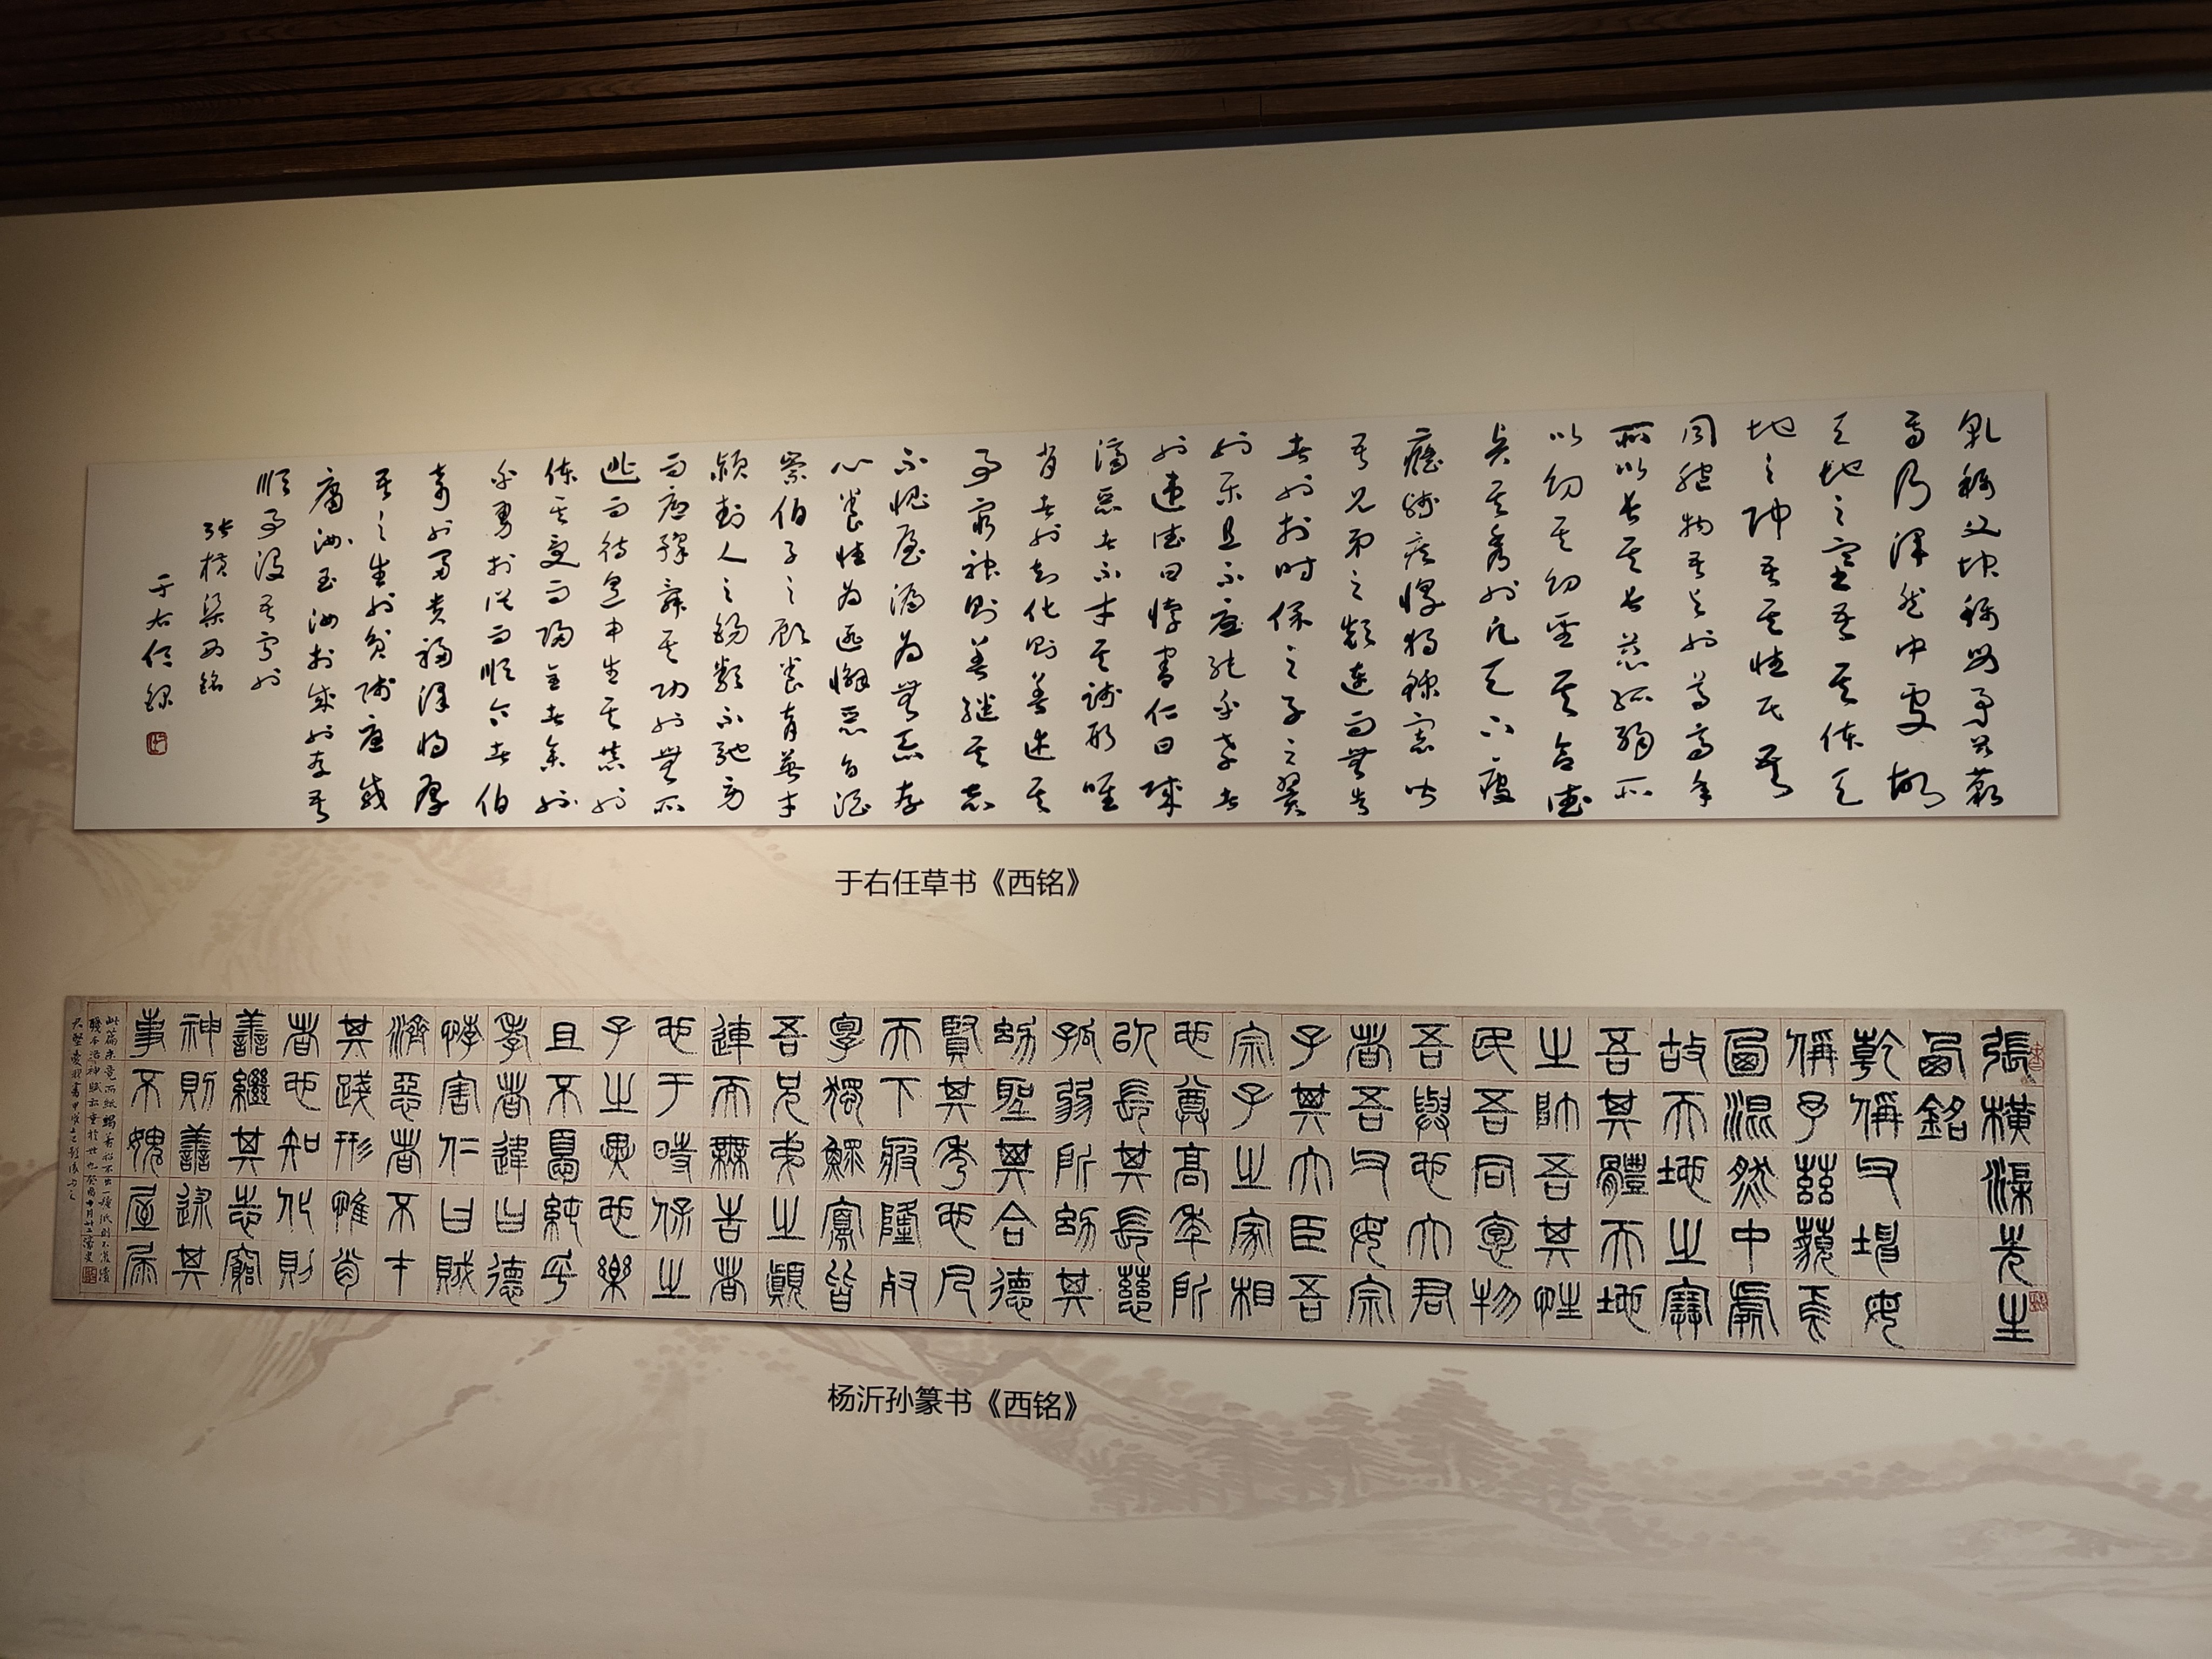 乾稱父坤稱母予茲藐
焉乃渾然中處故
天地之塞吾其体天
地之帥吾其性民吾
同胞物吾與也尊高年
所以長其長慈孤弱所
以幼其幼聖其合德
賢其秀也凡天下疲
癃殘疾惸獨鰥寡皆
吾兄弟之顛連而無告
者也於時保之子之翼
也樂且不憂純乎孝者
也違德曰悖害仁曰賊
濟惡者不才其踐形唯
肖者也知化則善述其
事窮神則善繼其志
不愧屋漏為無忝存
心養性為匪懈惡旨酒
崇伯子之顧養育英才
潁封人之錫類不弛勞
而底豫舜其功也無所
逃而待烹申生其恭也
体其受而歸全者參
乎勇於從而順令者伯
奇也富貴福澤將厚
吾之生也貧賤憂戚
庸汝玉汝於成也存吾
順事沒吾寧也
張橫渠西銘
于右任録
于右任草书《西铭》
張橫渠先生
西銘
乾偁父坤母
偁予茲藐焉
卥混然中處
故天地之塞
吾其體天地
之帥吾其性
民吾同胞物
吾與也大君
者吾父母宗
子其大臣吾
宗子之家相
也尊高年所
以長其長慈
孤弱所幼其
幼聖其合德
賢其秀也凡
天下疲隆
惸獨鰥寡皆
吾兄弟之顛
連而無告者
也于時保之
子之翼也樂
且不憂純乎
孝者違曰德
悖害仁曰賊
濟惡者不才
其踐形惟肖
者也知化則
善繼其志窮
神則善述其
事不愧屋漏
杨沂孙篆书《西铭》